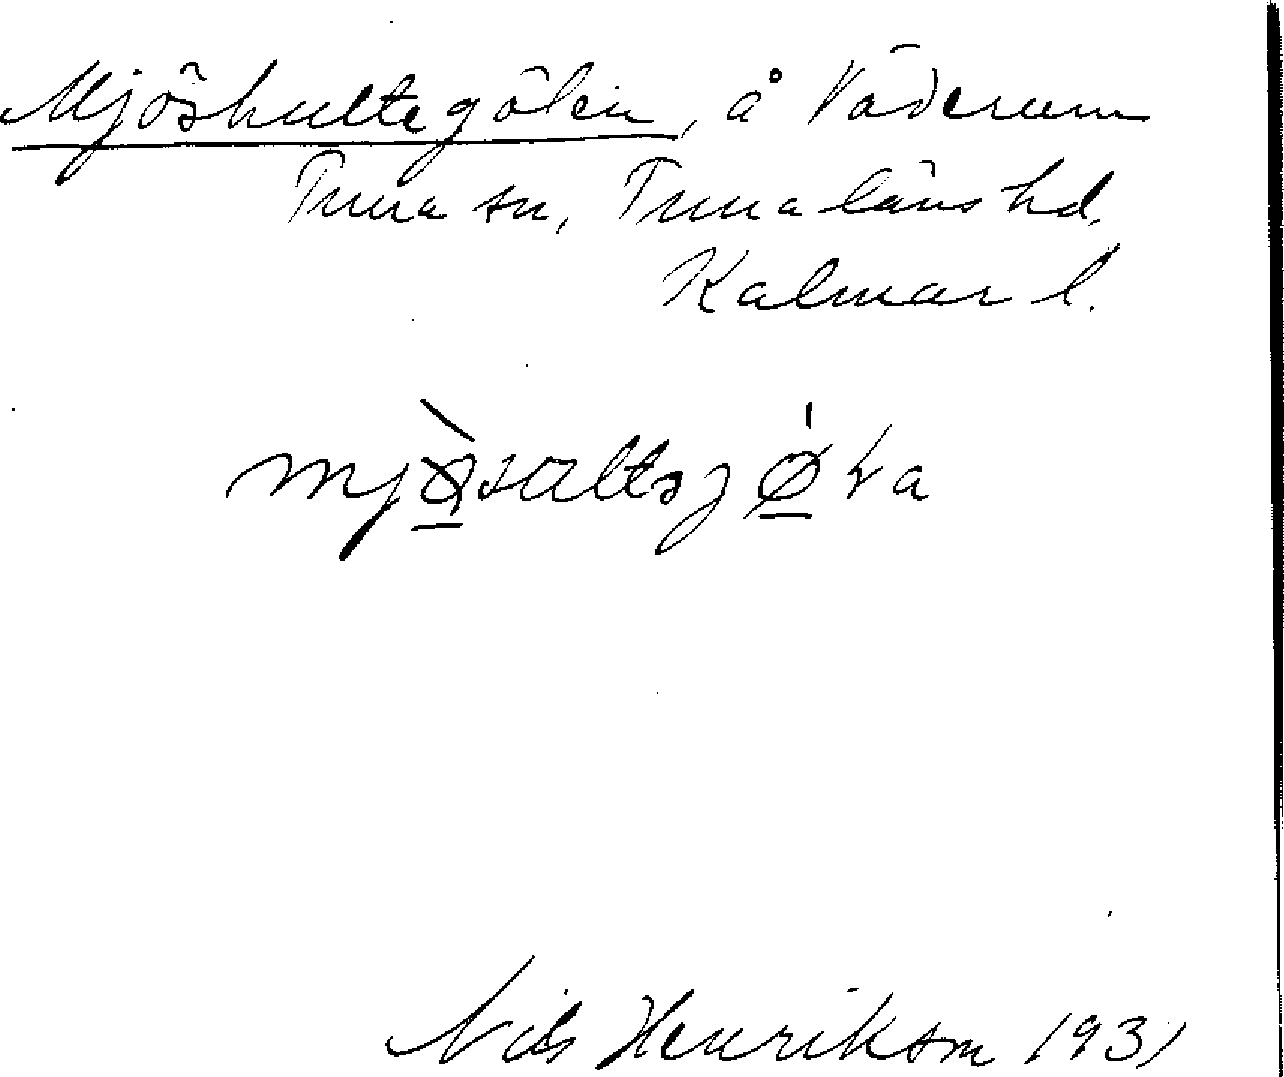 Mjöshultegölen, å Väderum
Tuna sn, Tunaläns hd.
Kalmar l.
Nils Henrikson 1931